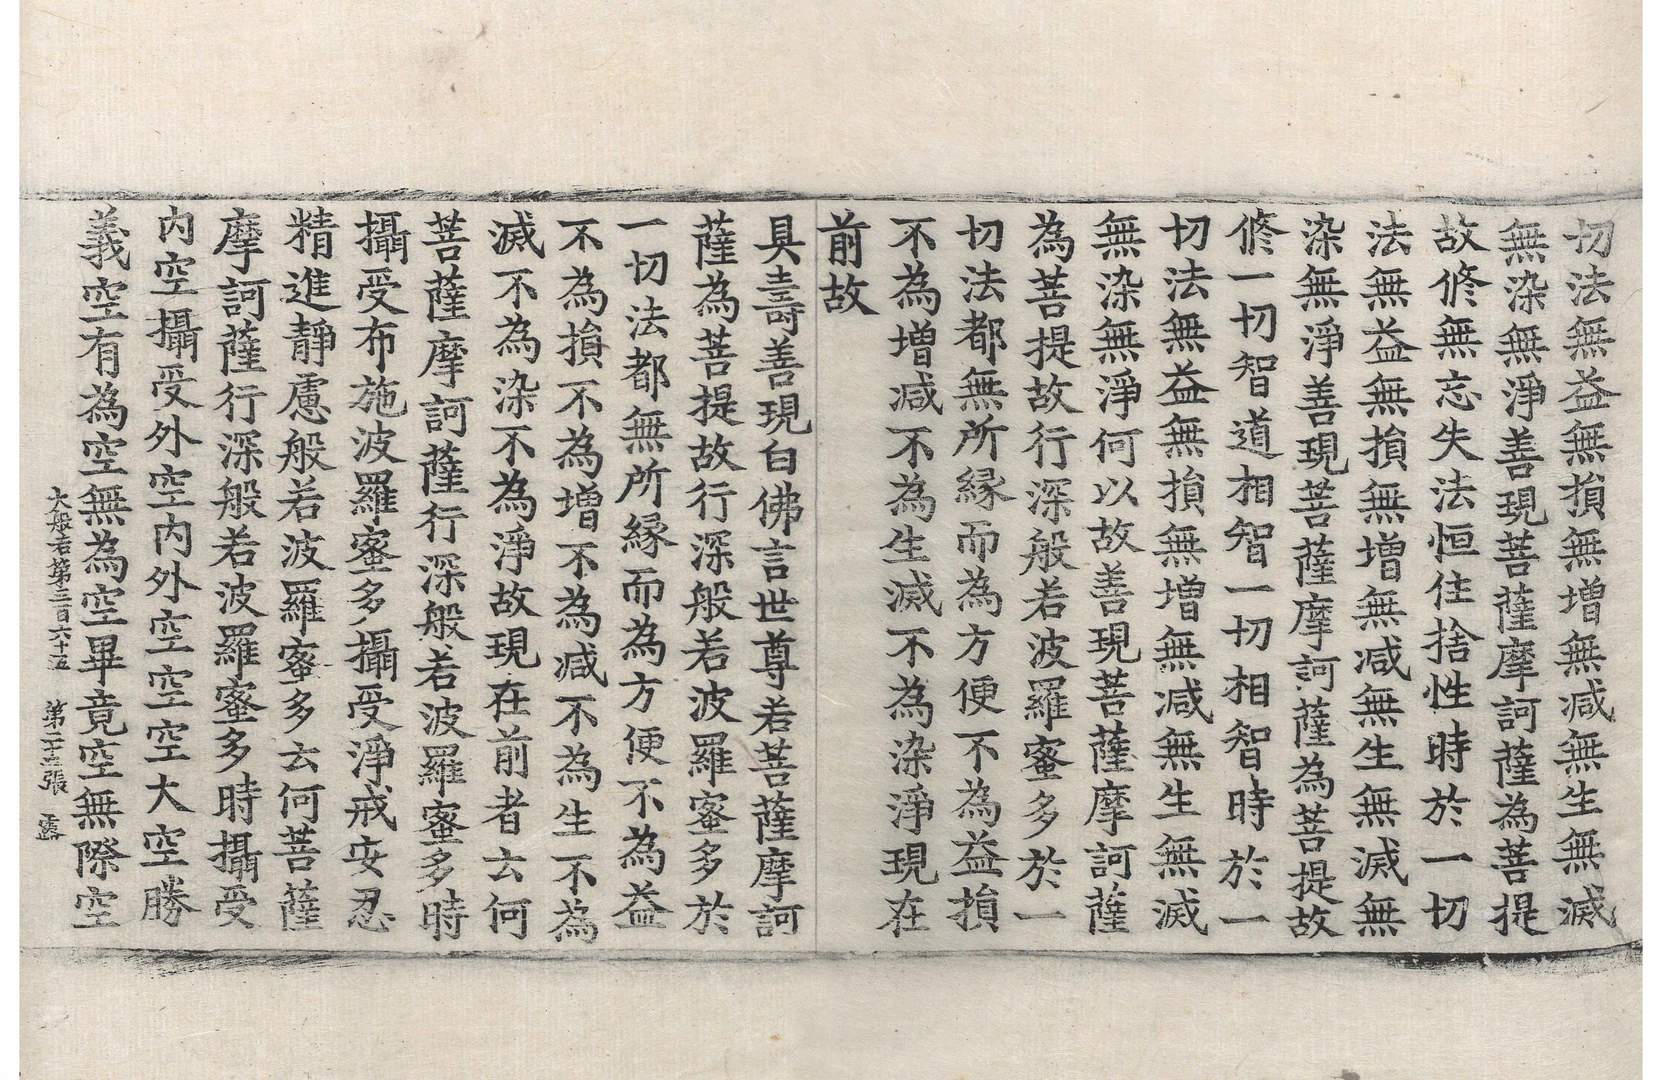 切法無益無損無增無减無生無滅
無染無淨善現菩薩摩訶薩為菩提
故修無忘失法恒住捨性時於一切
法無益無損無增無减無生無滅無
染無淨善現菩薩摩訶薩為菩提故
修一切智道相智一切相智時於一
切法無益無損無增無减無生無滅
無染無淨何以故善現菩薩摩訶薩
為菩提故行深般若波羅蜜多於一
切法都無所緣而為方便不為益損
不為增减不為生滅不為染淨現在
前故
具壽善現白佛言世尊若菩薩摩訶
薩為菩提故行深般若波羅蜜多於
一切法都無所緣而為方便不為益
不為損不為增不為减不為生不為
滅不為染不為淨故現在前者云何
菩薩摩訶薩行深般若波羅蜜多時
攝受布施波羅蜜多攝受淨戒安忍
精進靜慮般若波羅蜜多云何菩薩
摩訶薩行深般若波羅蜜多時攝受
內空攝受外空內外空空空大空勝
義空有為空無為空畢竟空無際空
大般若第三百六十五 第二十三張 露